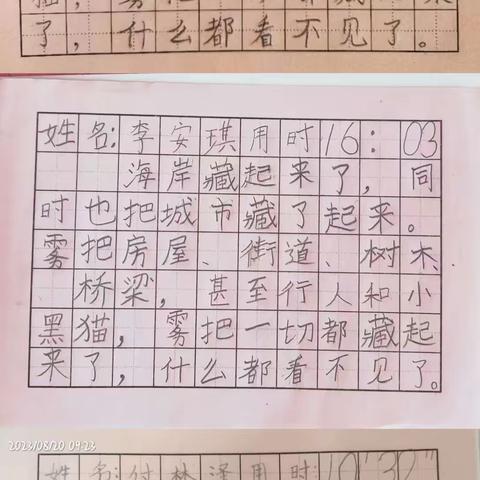 了，什么都看不见了。
姓名:李安琪用时16:03
海岸藏起来了，同
时也把城市藏了起来。
雾把房屋、街道、树木、
桥梁，甚至行人和小
黑猫，雾把一切都藏起
来了，什么都看不见了。
2023/08/20 09:23
姓名:付林泽用时:10"32"